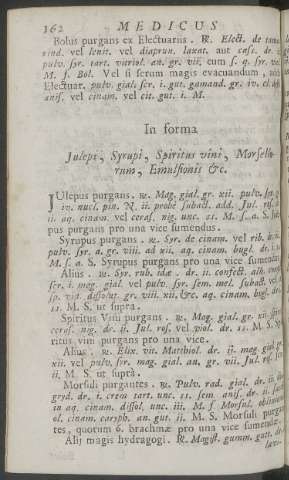 162 MEDICUS
Bolus purgans ex Electuariis. ℞. Elect. de tama-
rind. vel lenit. vel diaprun. laxat. aut casi. dr. i.
pulv. syr. tart. vitriol. an. gr. vii. cum s. q. syr.
M. f. Bol. Vel si serum magis evacuandum,
Electuar. pulv. gial. scr. i. gut. gamand. gr. iv. el.
anis. vel cinam. vel cit. gut. i. M.
In forma
Julepi, Syrupi, Spiritus vini, Morsello-
rum, Emulsionis &c.
JUlepus purgans. ℞. Mag. gial. gr. xii. pulv.
iv. nucl. pin. N. ii. probe subact. add. Jul. ros.
ii. aq. cinam. vel ceras. nig. unc. ii. M. f. a. S.
pus purgans pro una vice sumendus.
Syrupus purgans. ℞. Syr. de cinam. vel rib.
pulv. syr. a. gr. viii. ad xii. aq. cinam. bugl. dr.
M. f. a. S. Syrupus purgans pro una vice sumendus
Alius. ℞. Syr. rub. idæ. dr. ii. confect. alk.
scr. i. mag. gial. vel pulv. syr. sem. mel. subact. vel
sp. vin. dissolut. gr. viii. xii. &c. aq. cinam. bugl.
ii. M. S. ut supra.
Spiritus Vini purgans. ℞. Mag. gial. gr. xii.
ceras. nig. dr. ij. Jul. ros. vel viol. dr. ii. M. S.
ritus vini purgans pro una vice.
Alius. ℞. Elix. vit. Matthiol. dr. ij. mag. gial. gr.
xii. vel pulv. syr. mag. gial. an. gr. vii. Jul. ros.
ii. M. S. ut supra.
Morsuli purgantes. ℞. Pulv. rad. gial. dr. ii.
gryd. dr. i. crem tart. unc. ii. sem. anis. dr.
in aq. cinam. dissol. unc. iii. M. f. Morsul.
ol. cinam. caryoph. an. gut. ij. M. S. Morsuli purgan-
tes, quorum 6. drachmæ pro una vice sumendæ.
Alij magis hydragogi. ℞. Magist. gumm. gutt.